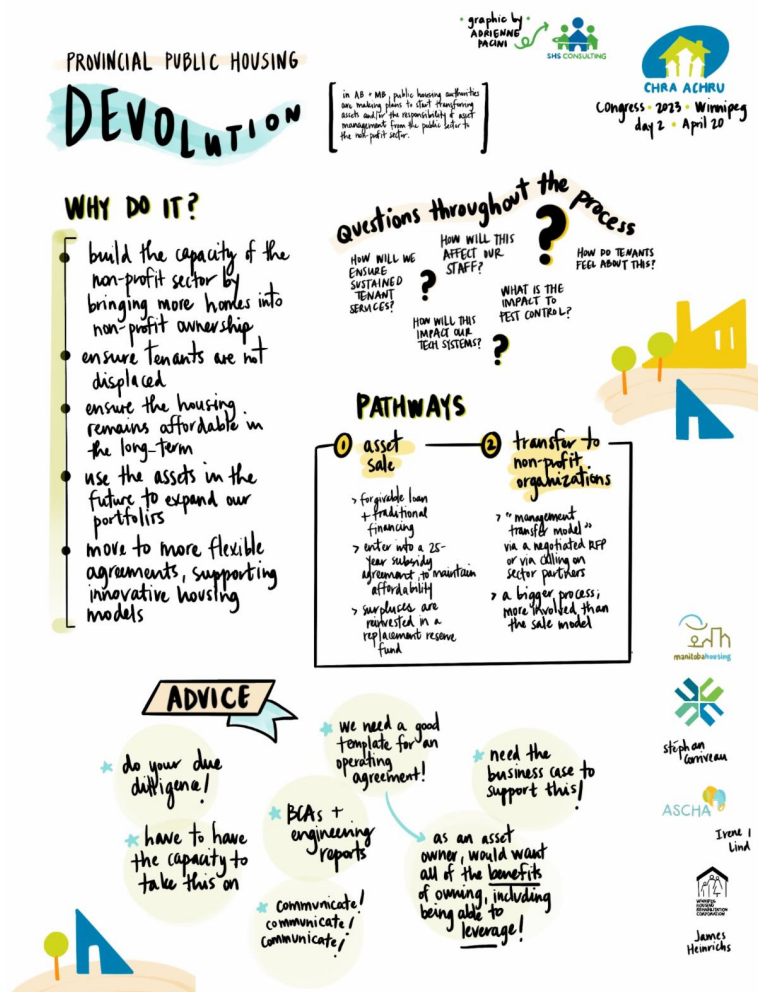 graphic by
ADRIENNE
PACINI
SHS CONSULTING
CHRA ACHRU
Congress • 2023 • Winnipeg
day 2 • April 20
PROVINCIAL PUBLIC HOUSING
DEVOLUTION
in AB + MB, public housing authorities
are making plans to start transferring
assets and/or the responsibility of asset
management from the public sector to
the non-profit sector.
WHY DO IT?
build the capacity of the
non-profit sector by
bringing more homes into
non-profit ownership
ensure tenants are not
displaced
ensure the housing
remains affordable in
the long-term
use the assets in the
future to expand our
portfolios
move to more flexible
agreements, supporting
innovative housing
models
Questions throughout the process
HOW WILL WE
ENSURE
SUSTAINED
TENANT
SERVICES?
?
HOW WILL THIS
AFFECT OUR
STAFF?
?
HOW DO TENANTS
FEEL ABOUT THIS?
HOW WILL THIS
IMPACT OUR
TECH SYSTEMS?
?
WHAT IS THE
IMPACT TO
PEST CONTROL?
PATHWAYS
1 asset
sale
> forgivable loan
+ traditional
financing
> enter into a 25-
year subsidy
agreement, to maintain
affordability
> surpluses are
reinvested in a
replacement reserve
fund
2 transfer to
non-profit
organizations
> "management
transfer model"
via a negotiated RFP
or via calling on
sector partners
> a bigger process;
more involved than
the sale model
ADVICE
do your due
diligence!
have to have
the capacity to
take this on
BCAs +
engineering
reports
communicate!
communicate!
communicate!
we need a good
template for an
operating
agreement!
as an asset
owner, would want
all of the benefits
of owning, including
being able to
leverage!
need the
business case to
support this!
manitobahousing
stéphan
corriveau
ASCHA
Irene
Lind
WINNIPEG
HOUSING
REHABILITATION
CORPORATION
James
Heinrichs